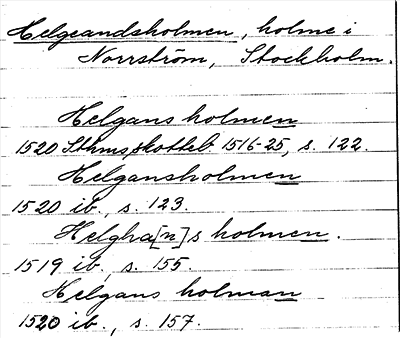 Helgeandsholmen, holme i
Norrström, Stockholm.
Helgans holmen
1520 Sthmsskotteb. 1516-25, s. 122.
Helgansholmen
1520 ib., s. 123.
Helgha[n]s holmen.
1519 ib., s. 155.
Helgans holman
1520 ib., s. 157.